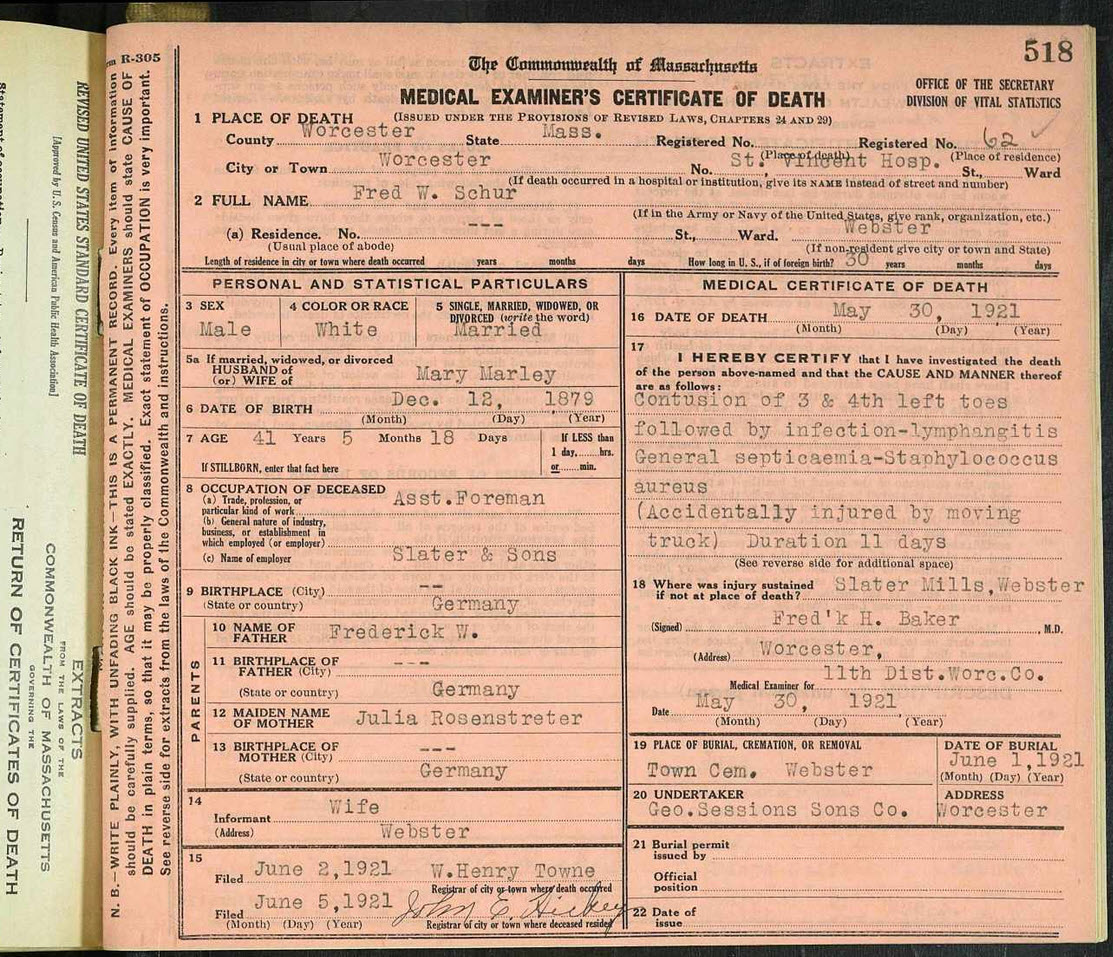 518
Form R-305
The Commonwealth of Massachusetts
MEDICAL EXAMINER'S CERTIFICATE OF DEATH
(ISSUED UNDER THE PROVISIONS OF REVISED LAWS, CHAPTERS 24 AND 29)
OFFICE OF THE SECRETARY
DIVISION OF VITAL STATISTICS
1 PLACE OF DEATH
County Worcester State Mass. Registered No. (Place of death) Registered No. 62 (Place of residence)
City or Town Worcester No. St. Vincent Hosp. St., Ward
(If death occurred in a hospital or institution, give its NAME instead of street and number)
2 FULL NAME Fred W. Schur
(If in the Army or Navy of the United States, give rank, organization, etc.)
(a) Residence. No. --- St., Ward. Webster
(Usual place of abode) (If non-resident give city or town and State)
Length of residence in city or town where death occurred years months days How long in U. S., if of foreign birth? 30 years months days
PERSONAL AND STATISTICAL PARTICULARS
3 SEX
Male
4 COLOR OR RACE
White
5 SINGLE, MARRIED, WIDOWED, OR
DIVORCED (write the word)
Married
5a If married, widowed, or divorced
HUSBAND of
(or) WIFE of Mary Marley
6 DATE OF BIRTH Dec. 12, 1879
(Month) (Day) (Year)
7 AGE 41 Years 5 Months 18 Days
If LESS than
1 day, hrs.
or min.
If STILLBORN, enter that fact here
8 OCCUPATION OF DECEASED
(a) Trade, profession, or
particular kind of work Asst.Foreman
(b) General nature of industry,
business, or establishment in
which employed (or employer)
(c) Name of employer Slater & Sons
9 BIRTHPLACE (City) --
(State or country) Germany
PARENTS
10 NAME OF
FATHER Frederick W.
11 BIRTHPLACE OF
FATHER (City) ---
(State or country) Germany
12 MAIDEN NAME
OF MOTHER Julia Rosenstreter
13 BIRTHPLACE OF
MOTHER (City) ---
(State or country) Germany
14
Informant Wife
(Address) Webster
15
Filed June 2,1921 W.Henry Towne
Registrar of city or town where death occurred
Filed June 5,1921 John E. Hickey
(Month) (Day) (Year) Registrar of city or town where deceased resided
MEDICAL CERTIFICATE OF DEATH
16 DATE OF DEATH May 30, 1921
(Month) (Day) (Year)
17
I HEREBY CERTIFY that I have investigated the death
of the person above-named and that the CAUSE AND MANNER thereof
are as follows:
Contusion of 3 & 4th left toes
followed by infection-lymphangitis
General septicaemia-Staphylococcus
aureus
(Accidentally injured by moving
truck) Duration 11 days
(See reverse side for additional space)
18 Where was injury sustained
if not at place of death? Slater Mills,Webster
(Signed) Fred'k H. Baker , M.D.
(Address) Worcester,
Medical Examiner for 11th Dist.Worc.Co.
Date May 30, 1921
(Month) (Day) (Year)
19 PLACE OF BURIAL, CREMATION, OR REMOVAL
Town Cem. Webster
DATE OF BURIAL
June 1,1921
(Month) (Day) (Year)
20 UNDERTAKER
Geo.Sessions Sons Co.
ADDRESS
Worcester
21 Burial permit
issued by
Official
position
22 Date of
issue
N. B.—WRITE PLAINLY, WITH UNFADING BLACK INK—THIS IS A PERMANENT RECORD. Every item of information
should be carefully supplied. AGE should be stated EXACTLY. MEDICAL EXAMINERS should state CAUSE OF
DEATH in plain terms, so that it may be properly classified. Exact statement of OCCUPATION is very important.
See reverse side for extracts from the laws of the Commonwealth and instructions.
REVISED UNITED STATES STANDARD CERTIFICATE OF DEATH
[Approved by U. S. Census and American Public Health Association]
Statement of occupation.
EXTRACTS
FROM THE LAWS OF THE
COMMONWEALTH OF MASSACHUSETTS
GOVERNING THE
RETURN OF CERTIFICATES OF DEATH